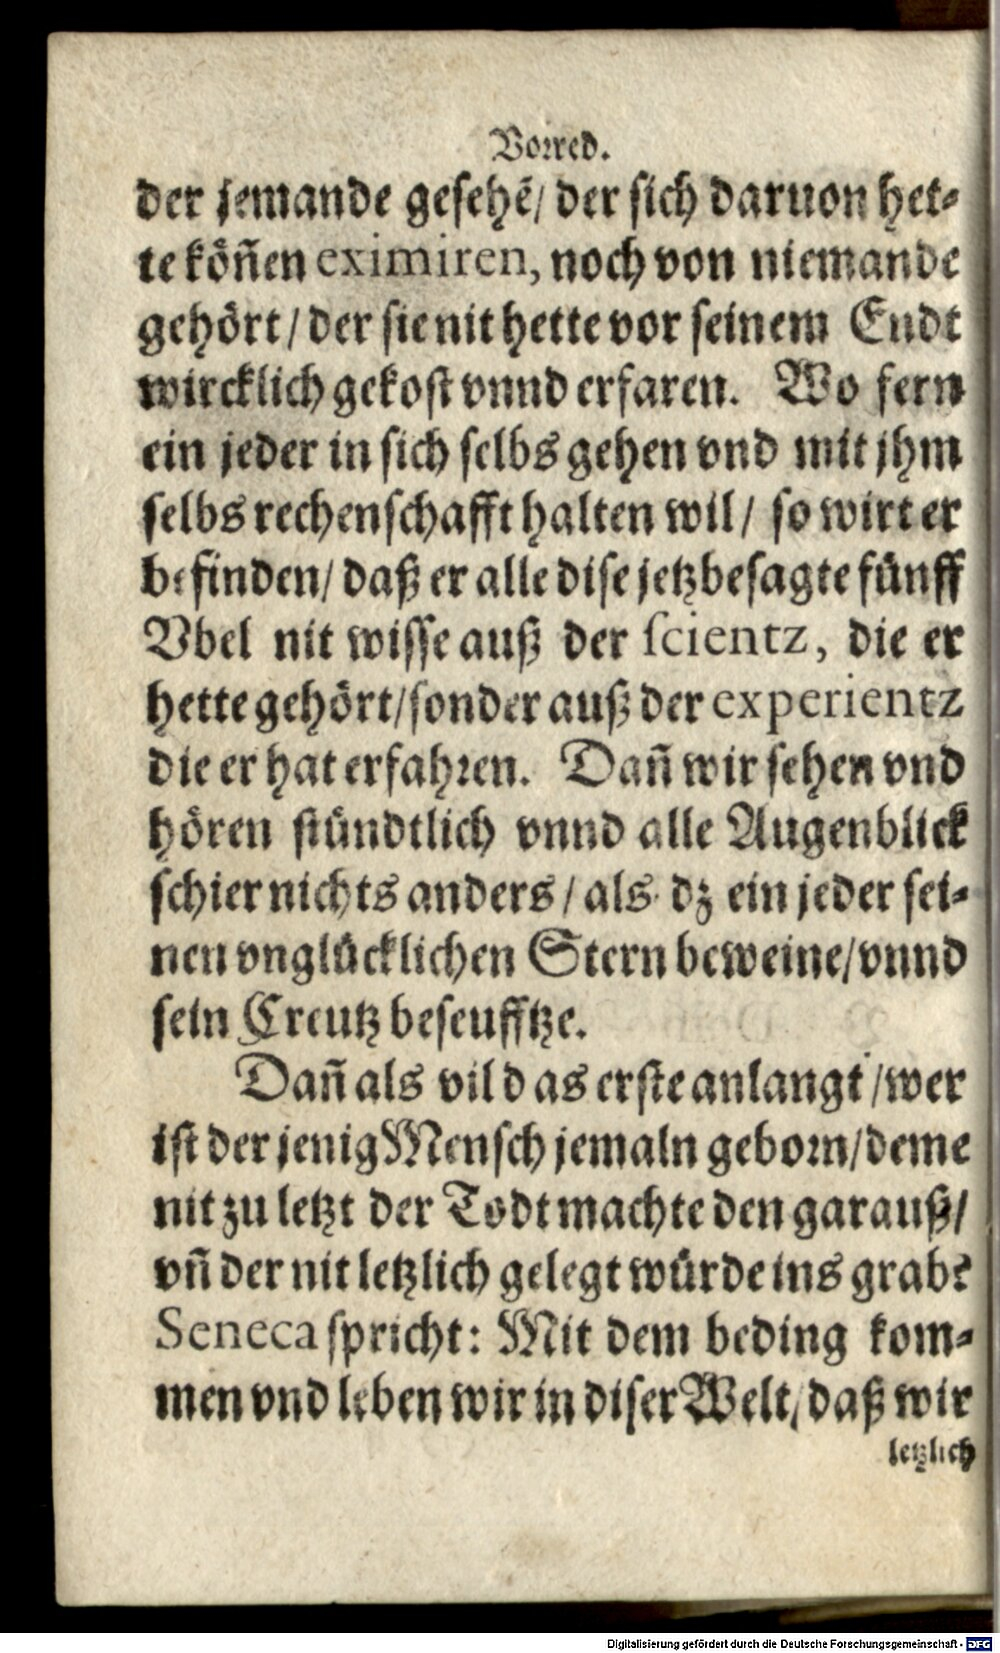 Vorred.
der jemande gesehē/ der sich daruon het-
te köñen eximiren, noch von niemande
gehört/ der sie nit hette vor seinem Endt
wircklich gekost vnnd erfaren. Wo fern
ein jeder in sich selbs gehen vnd mit jhm
selbs rechenschafft halten wil/ so wirt er
befinden/ daß er alle dise jetzbesagte fünff
Vbel nit wisse auß der scientz, die er
hette gehört/ sonder auß der experientz
die er hat erfahren. Dañ wir sehen vnd
hören stündtlich vnnd alle Augenblick
schier nichts anders/ als dz ein jeder sei-
nen vnglücklichen Stern beweine/ vnnd
sein Creutz beseufftze.
Dañ als vil das erste anlangt/ wer
ist der jenig Mensch jemaln geborn/ deme
nit zu letzt der Todt machte den garauß/
vñ der nit letzlich gelegt würde ins grab?
Seneca spricht: Mit dem beding kom-
men vnd leben wir in diser Welt/ daß wir
letzlich
Digitalisierung gefördert durch die Deutsche Forschungsgemeinschaft - DFG